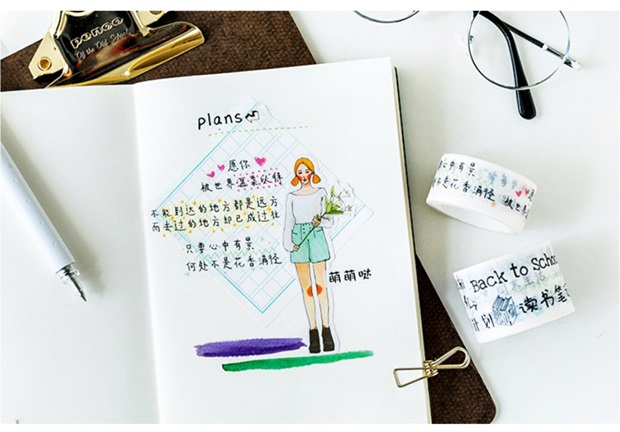 PENCO
plans
愿你
被世界温柔以待
不能到达的地方都是远方
而去过的地方却已成过往
只要心中有景
何处不是花香满径
萌萌哒
心中有景
不是花香满径
Back to Schoo
计划
读书笔